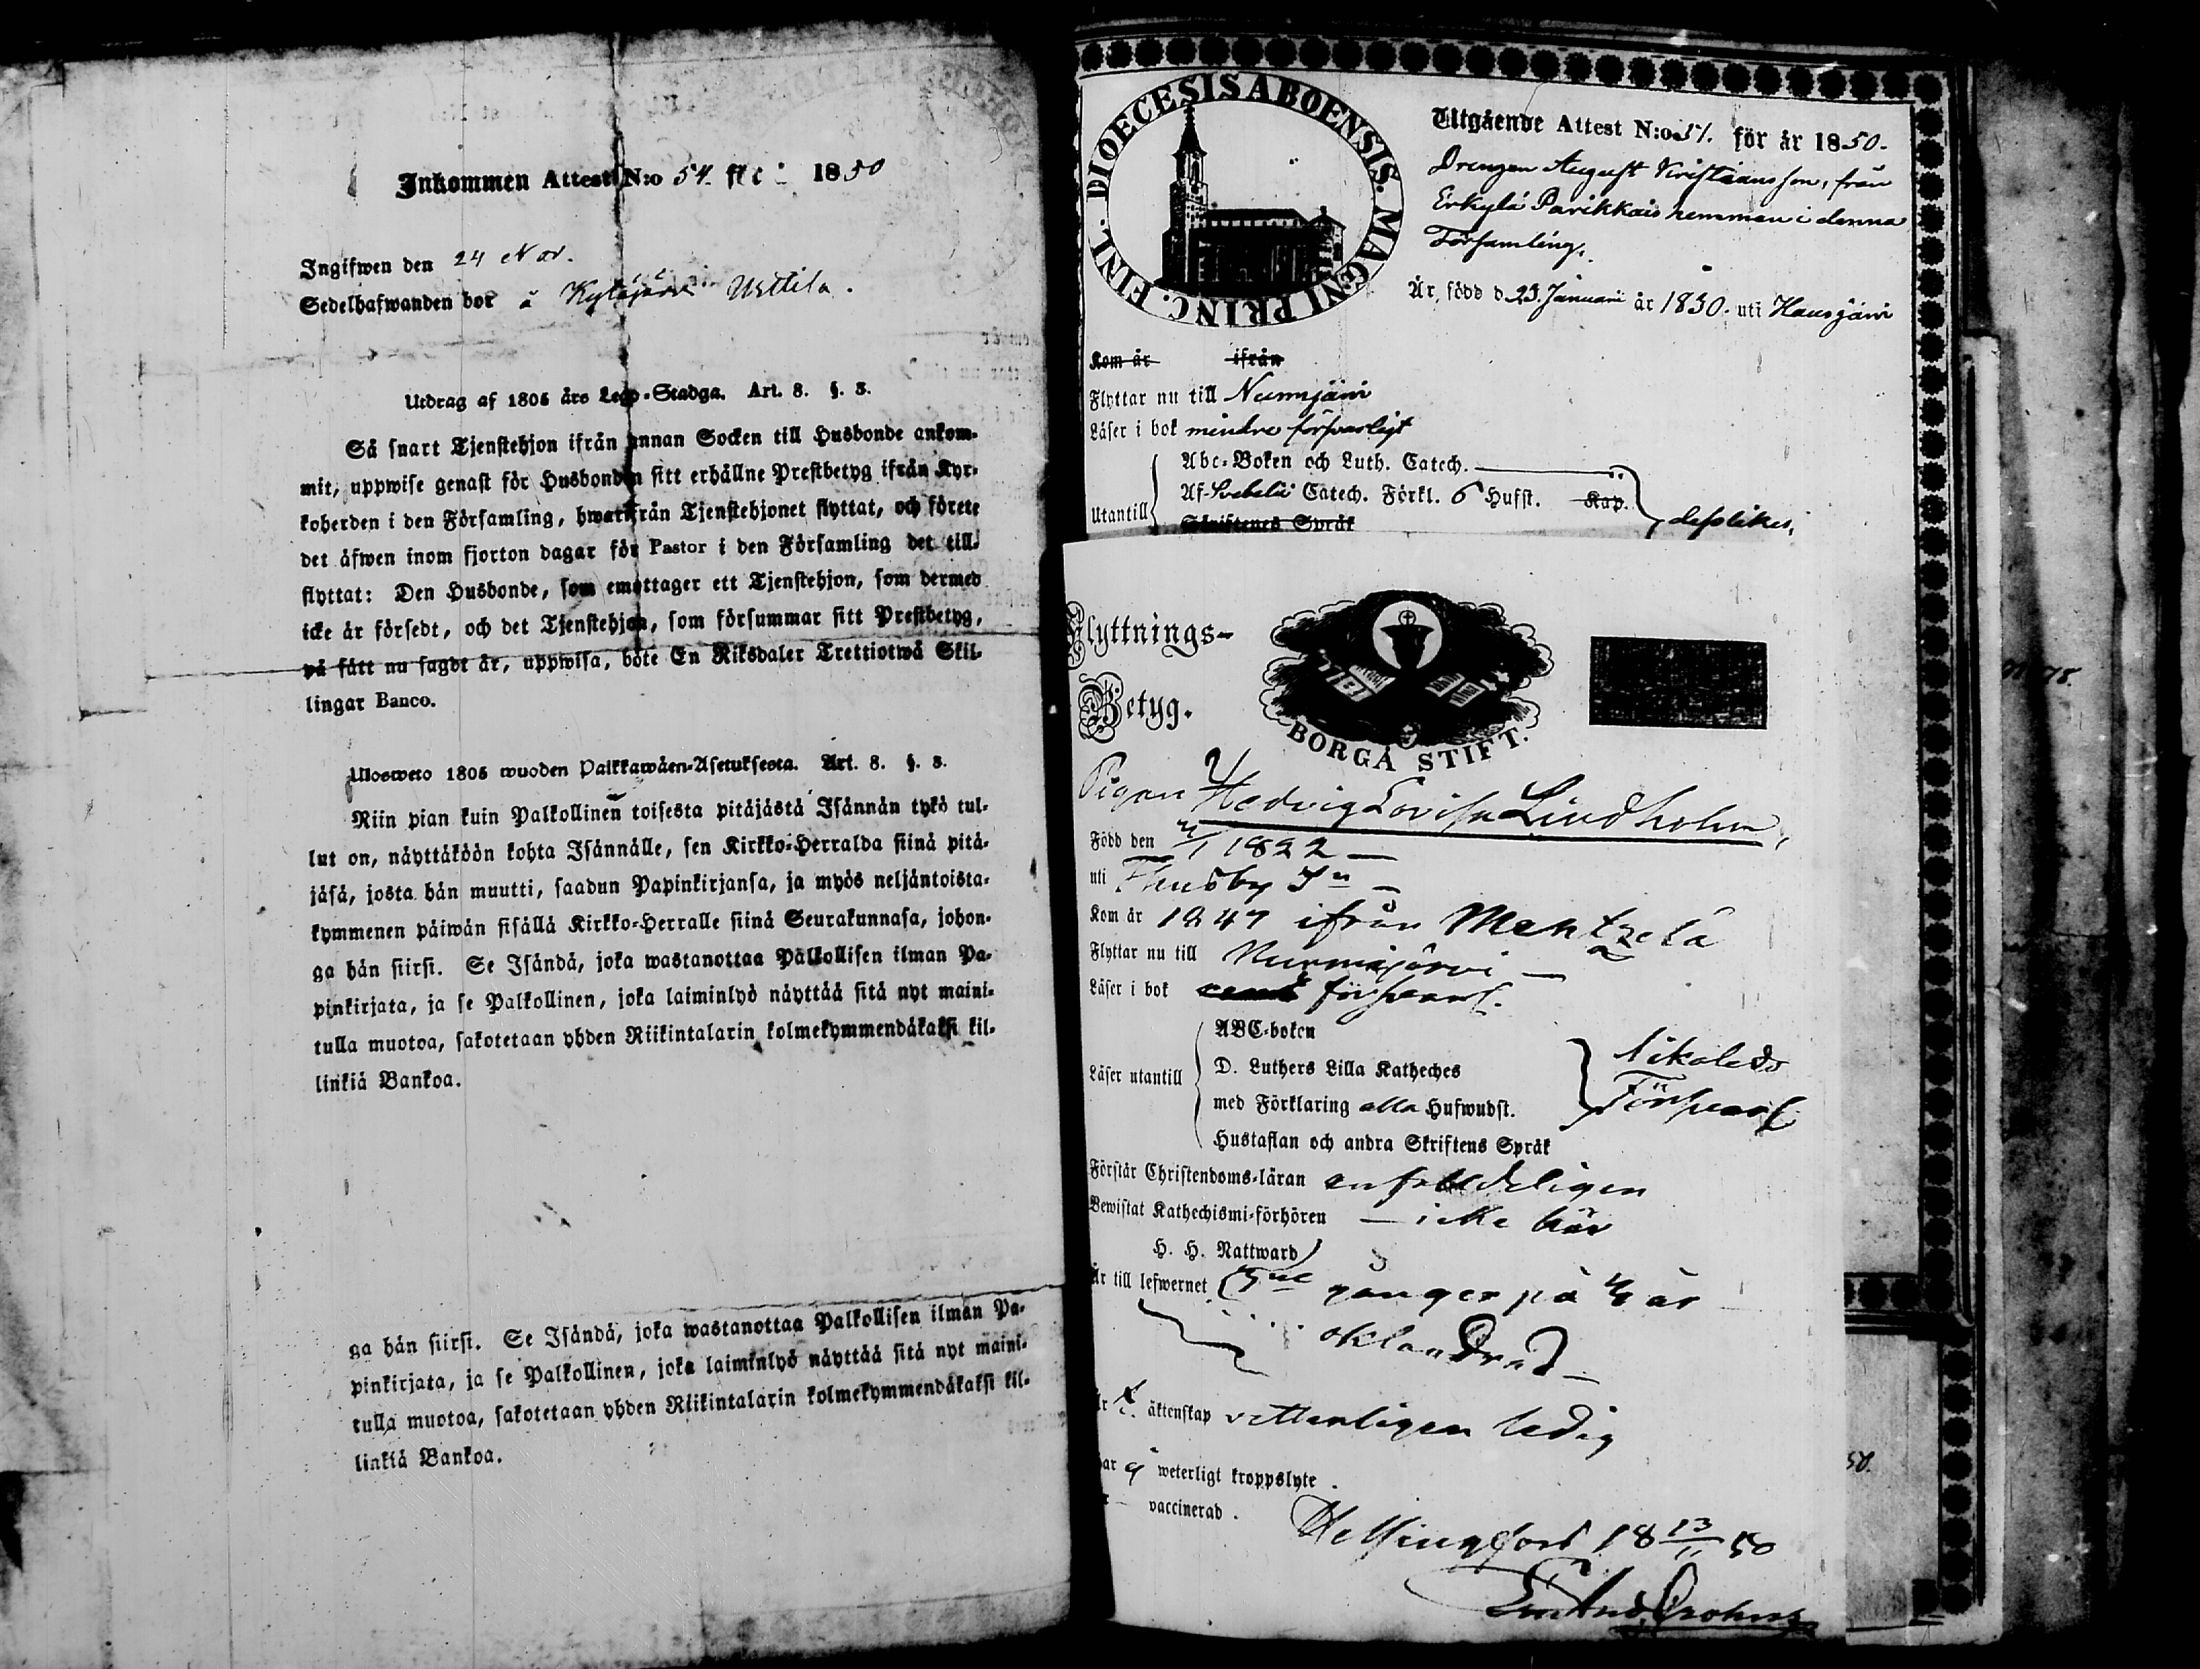 Inkommen Attest N:o 54. för 1850
Ingifwen den 24 Nov.
Sedelhafwanden bor å Kytäjärvi Uettila.
Utdrag af 1805 års Lego-Stadga. Art. 8. §. 3.
Så snart Tjenstehjon ifrån annan Socken till Husbonde ankom-
mit, uppwise genast för Husbonden sitt erhållne Prestbetyg ifrån Kyr-
koherden i den Församling, hwarifrån Tjenstehjonet flyttat, och förete
det äfwen inom fjorton dagar för Pastor i den Församling det till-
flyttat: Den Husbonde, som emottager ett Tjenstehjon, som dermed
icke är försedt, och det Tjenstehjon, som försummar sitt Prestbetyg,
på sätt nu sagdt är, uppwisa, böte En Riksdaler Trettiotwå Skil-
lingar Banco.
Ulosweto 1805 wuoden Palkkawäen-Asetuksesta. Art. 8. §. 3.
Niin pian kuin Palkollinen toisesta pitäjästä Isännän tykö tul-
lut on, näyttäköön kohta Isännälle, sen Kirkko-Herralda siinä pitä-
jäsä, josta hän muutti, saadun Papinkirjansa, ja myös neljäntoista-
kymmenen päiwän sisällä Kirkko-Herralle siinä Seurakunnasa, johon-
ga hän siirsi. Se Isändä, joka wastanottaa Palkollisen ilman Pa-
pinkirjata, ja se Palkollinen, joka laiminlyö näyttää sitä nyt maini-
tulla muotoa, sakotetaan yhden Riikintalarin kolmekymmendäkaksi kil-
linkiä Bankoa.
ga hän siirsi. Se Isändä, joka wastanottaa Palkollisen ilman Pa-
pinkirjata, ja se Palkollinen, joka laiminlyö näyttää sitä nyt maini-
tulla muotoa, sakotetaan yhden Riikintalarin kolmekymmendäkaksi kil-
linkiä Bankoa.
DIOECESIS ABOENSIS. MAGNI PRINC. FINL.
Utgående Attest N:o 51. för år 1850.
Drengen August Kristiansson, från
Erkylä Parikkais hemman i denna
Församling.
Är, född d. 23. Januarii år 1830. uti Hausjärvi
Kom år ifrån
Flyttar nu till Nurmijärvi
Läser i bok mindre försvarligt
Abc-Boken och Luth. Catech.
Af Svebelii Catech. Förkl. 6 Hufst. Kap.
Utantill desslikes,
Skriftenes Språk
Flyttnings-
Betyg.
BORGÅ STIFT.
Pigan Hedvig Lovisa Lindholm,
Född den 1822
uti Thusby Sn
Kom år 1847 ifrån Mentzelä
Flyttar nu till Nurmijärvi
Läser i bok försvarl.
ABC-boken
D. Luthers Lilla Katheches
Läser utantill
med Förklaring alla Hufwudst.
likaledes
Försvarl.
Hustaflan och andra Skriftens Språk
Förstår Christendoms-läran enfaldeligen
Bewistat Kathechismi-förhören icke här
H. H. Nattward
Är till lefwernet gånger på år
oklandrad
Är t. äktenskap vetterligen ledig
Har ej weterligt kroppslyte.
vaccinerad.
Helsingfors 18 13/11 50
50.